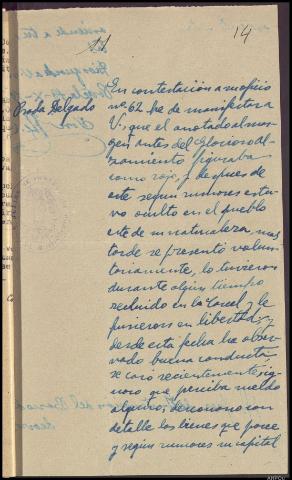 14
Prada Delgado
En contestación a su oficio
nº 62 he de manifestar a
V. que el anotado al mar
gen antes del Glorioso Al
zamiento figuraba
como rojo, y despues de
este segun rumores estu
vo oculto en el pueblo
este de su naturaleza mas
tarde se presentó volun
tariamente, lo tuvieron
durante algun tiempo
recluido en la Carcel y le
pusieron en libertad, y
desde esta fecha ha obser
vado buena conducta,
se casó recientemente, ig
noro que perciba sueldo
alguno, desconozco con
detalle los bienes que posee
y según rumores su capital